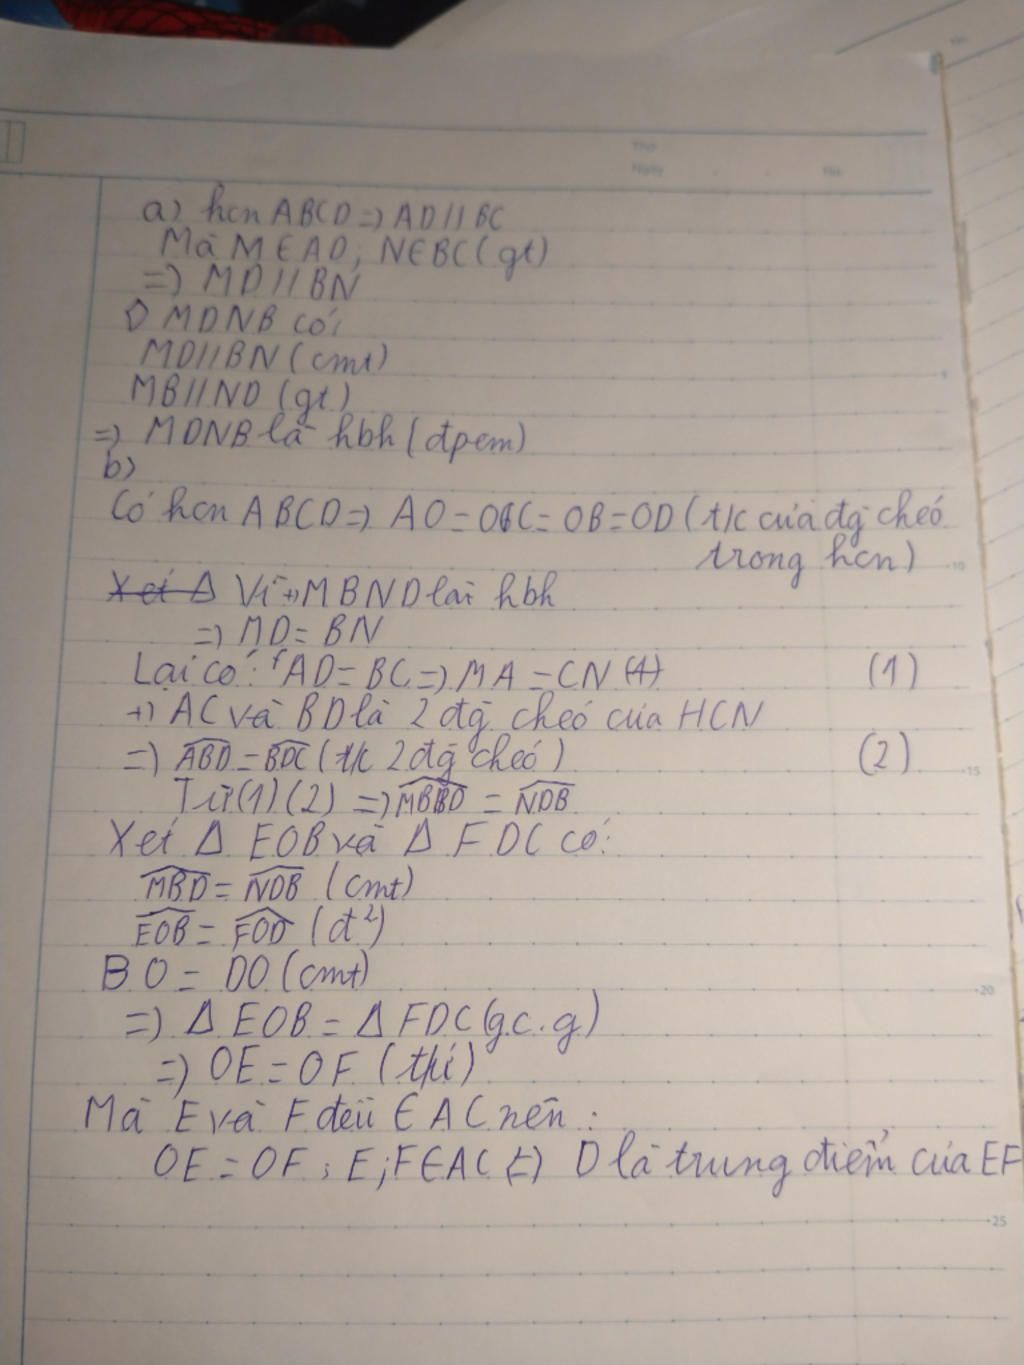 Thứ
Ngày
No.
a) hcn ABCD => AD // BC
Mà M ∈ AD; N ∈ BC (gt)
=> MD // BN
MDNB có:
MD // BN (cmt)
MB // ND (gt)
=> MDNB là hbh (đpcm)
b)
Có hcn ABCD => AO = OC = OB = OD (t/c của đg chéo
trong hcn)
Xét Δ Vì +) MBND là hbh
=> MD = BN
Lại có: AD = BC => MA = CN (1)
+) AC và BD là 2 đg chéo của HCN
=> ABD = BDC (t/c 2 đg chéo) (2)
Từ (1) (2) => MBD = NDB
Xét Δ EOB và Δ FDC có:
MBD = NDB (cmt)
EOB = FOD (đ²)
BO = DO (cmt)
=> Δ EOB = Δ FDC (g.c.g)
=> OE = OF (t/ứ)
Mà E và F đều ∈ AC nên:
OE = OF; E; F ∈ AC => O là trung điểm của EF